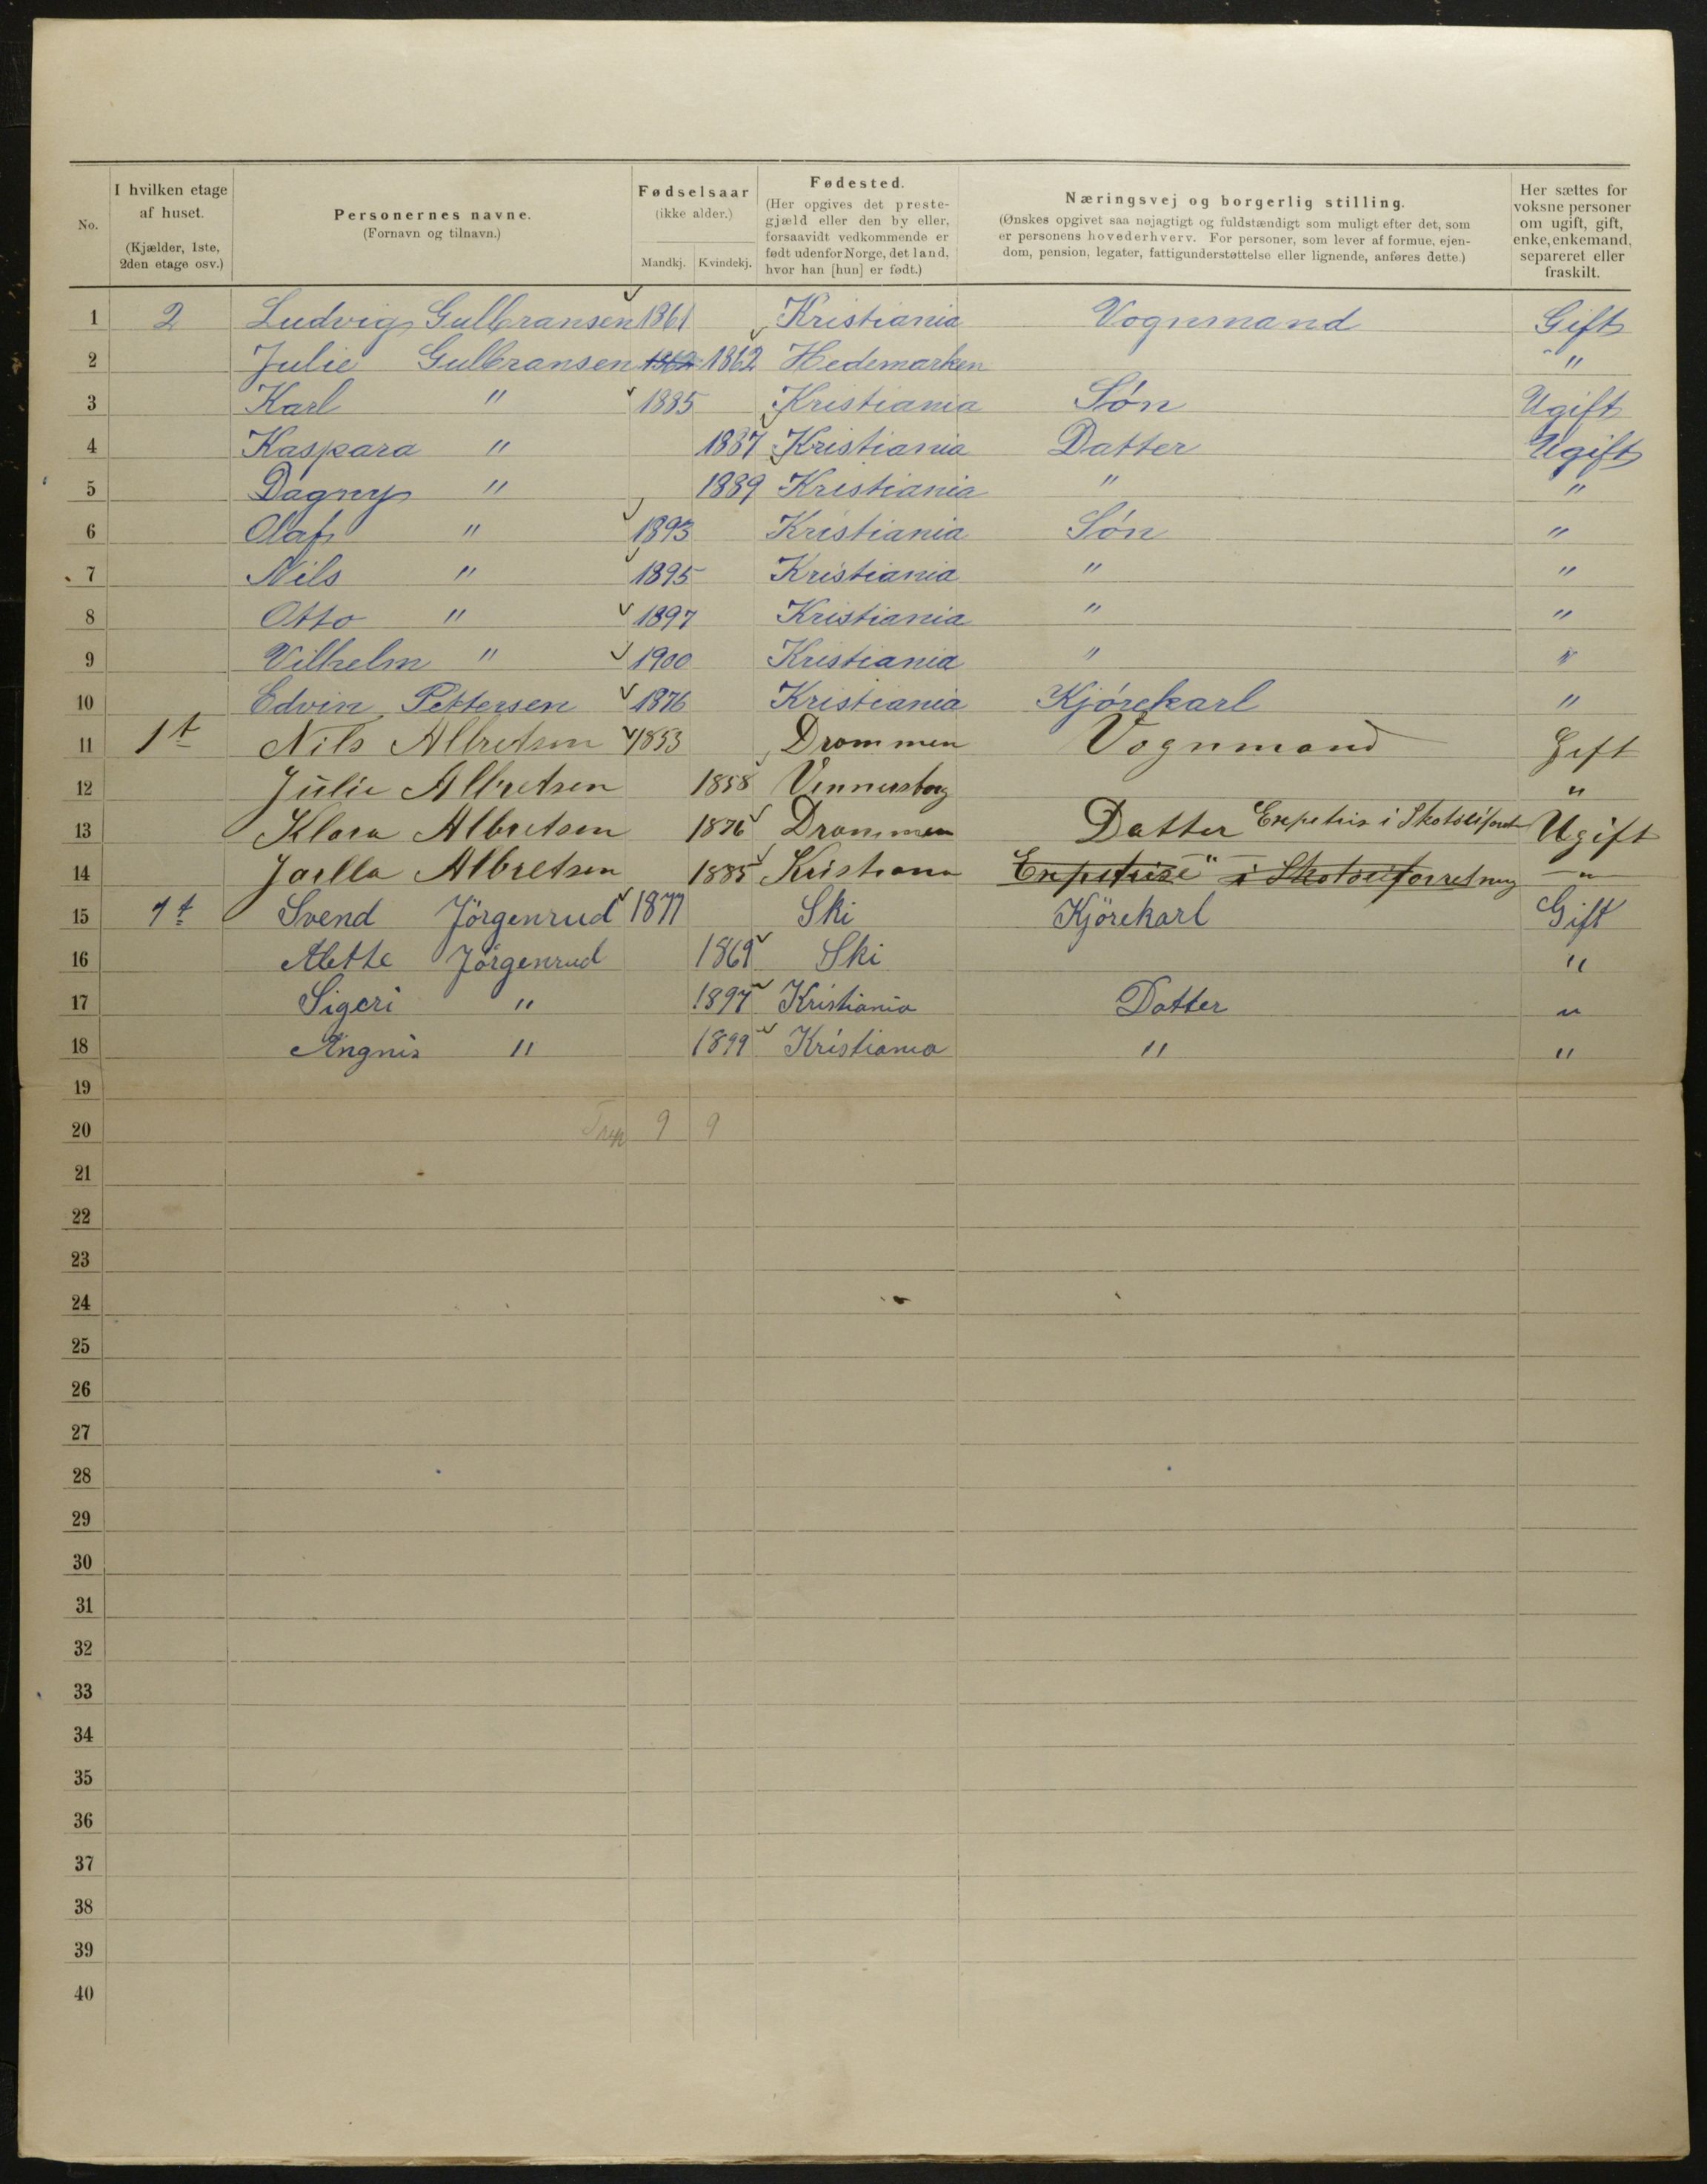 No. | I hvilken etage af huset. (Kjælder, 1ste, 2den etage osv.) | Personernes navne. (Fornavn og tilnavn.) | Fødselsaar (ikke alder.) Mandkj. | Kvindekj. | Fødested. (Her opgives det prestegjæld eller den by eller, forsaavidt vedkommende er født udenfor Norge, det land, hvor han [hun] er født.) | Næringsvej og borgerlig stilling. (Ønskes opgivet saa nøjagtigt og fuldstændigt som muligt efter det, som er personens hovederhverv. For personer, som lever af formue, ejendom, pension, legater, fattigunderstøttelse eller lignende, anføres dette.) | Her sættes for voksne personer om ugift, gift, enke, enkemand, separeret eller fraskilt.
1 2 Ludvig Gulbransen 1861 Kristiania Vognmand Gift
2 Julie Gulbransen 1862 1862 Hedemarken "
3 Karl " 1885 Kristiania Søn Ugift
4 Kaspara " 1887 Kristiania Datter Ugift
5 Dagny " 1889 Kristiania " "
6 Olaf " 1893 Kristiania Søn "
7 Nils " 1895 Kristiania " "
8 Otto " 1897 Kristiania " "
9 Vilhelm " 1900 Kristiania " "
10 Edvin Pettersen 1876 Kristiania Kjørekarl "
11 1t Nils Albretsen 1853 Drammen Vognmand Gift
12 Julie Albretsen 1858 Vennersborg "
13 Klara Albretsen 1876 Drammen Datter Expetris i Skotöiforet Ugift
14 Jaella Albretsen 1885 Kristiana Expetrise " i Skotöiforretning "
15 1t Svend Jörgenrud 1877 Ski Kjörekarl Gift
16 Mette Jörgenrud 1869 Ski "
17 Sigeri " 1897 Kristiania Datter "
18 Angnis " 1899 Kristiania " "
19
20 9 9
21
22
23
24
25
26
27
28
29
30
31
32
33
34
35
36
37
38
39
40